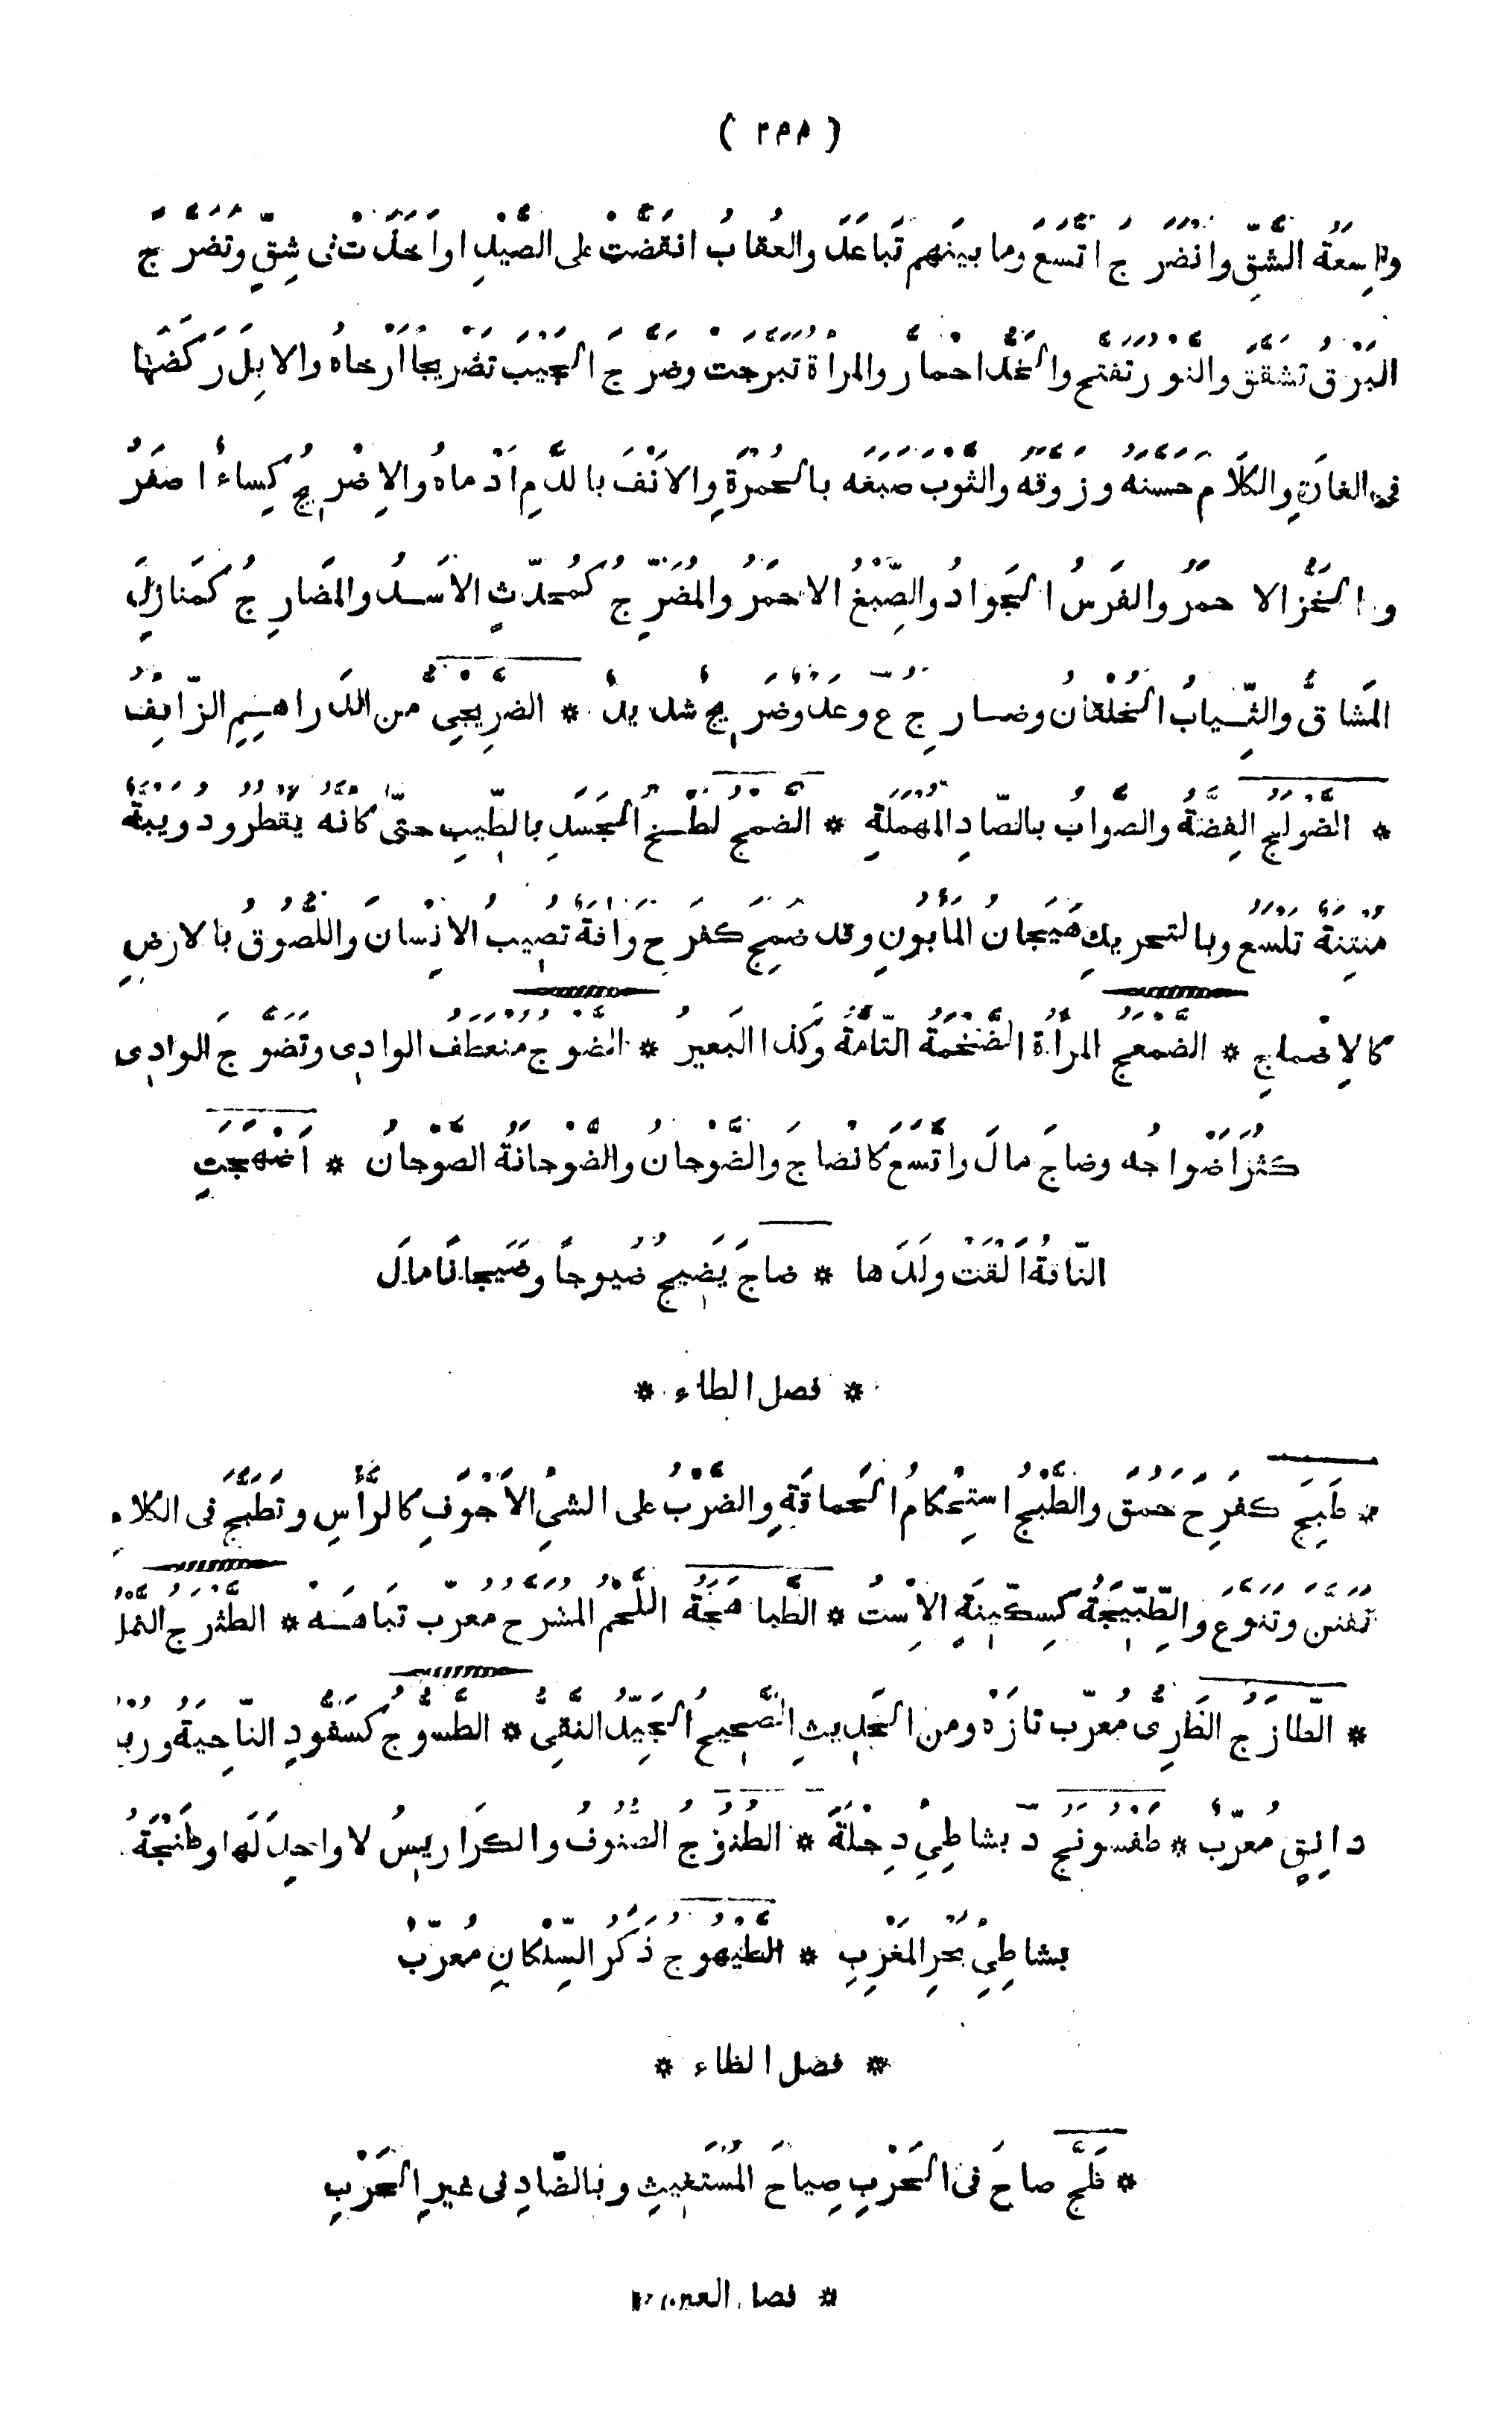 ( ٢٨٨ )
واسِعَةُ الشَّقِّ وانْضَرَجَ اتَّسَعَ وما بينَهم تَباعَدَ والعُقابُ انْقَضَّتْ على الصَّيْدِ اواَخَذَتْ فى شِقٍّ وتَضَرَّجَ
البَرْقُ تَشَقَّقَ والنَّوْرُ تَفَتَّحَ والخَدُّ احْمارَّ والمَرْأةُ تَبَرَّجَتْ وضَرَّجَ الجَيْبَ تَضْرِيجًا اَرْخاهُ والابِلَ رَكَضَها
فى الغارَةِ والكَلَامَ حَسَّنَهُ وزَوَّقَهُ والثَّوْبَ صَبَغَهُ بالحُمْرَةِ والاَنْفَ بالدَّمِ اَدْماهُ والاِضْرِيجُ كِساءٌ اصْفَرُ
والخَزُّ الاحمَرُ والفَرَسُ الجَوادُ والصِّبْغُ الاحمَرُ والمُضَرِّجُ كَمُحَدِّثٍ الاَسَدُ والمَضارِجُ كَمَنازِلَ
المَشَاقُّ والثِّيابُ الخُلْقانُ وضارِجٌ ع وعَدْوٌ ضَرِيجٌ شديدٌ * الضَّرِيجِىُّ من الدَّراهِيمِ الزَّائِفُ
* الضَّوْلَجُ الفِضَّةُ والصَّوابُ بالصّادِ المُهْمَلَةِ * الضَّمْجُ لَطْخُ الجَسَدِ بالطِّيبِ حتَّى كانَّهُ يَقْطُرُ ودُوَيْبَّةٌ
مُنْتِنَةٌ تَلْسَعُ وبالتحريكِ هَيَجانُ المَأبُونِ وقد ضَمِجَ كفَرِحَ وآفَةٌ تُصِيبُ الانْسانَ واللُّصُوقُ بالارضِ
كالاِضْماجِ * الضَّمْعَجُ المَرْأةُ الضَّخْمَةُ التَّامَّةُ وكذا البَعيرُ * الضَّوْجُ مُنْعَطَفُ الوادِى وتَضَوَّجَ الوادِى
كَثُرَ اَضْواجُهُ وضاجَ مالَ واتَّسَعَ كانْضاجَ والضَّوْجانُ والضَّوْجانَةُ الصَّوْجانُ * اَضْهَجَتِ
النّاقَةُ اَلْقَتْ ولَدَها * ضاجَ يَضِيجُ ضُيوجاً وضَيَجاناً مالَ
* فصل الطاء *
* طَبِجَ كفَرِحَ حَمُقَ والطَّبْجُ اسْتِحْكامُ الحَماقَةِ والضَّرْبُ على الشىْءِ الاَجْوَفِ كالرَّأْسِ وتَطَبَّجَ فى الكلامِ
تَفَنَّنَ وتَنَوَّعَ والطِّبِّيجَةُ كَسِكِّينَةٍ الاِسْتُ * الطَّباهَجَةُ اللَّحْمُ المُشَرَّحُ معرّب تَباهَهْ * الطَّثْرَجُ النَّمْلُ
* الطّازَجُ الطَّرِىُّ مُعَرّب تازَهْ ومن الحَديثِ الصَّحِيحُ الجَيِّدُ النَّقِىُّ * الطَّسُّوجُ كَسَفُّودٍ النّاحِيَةُ ورُبْعُ
دانِقٍ مُعرَّبٌ * طَفْسُونَج د بشاطِئِ دِجْلَةَ * الطُّنُوجُ الصُّنُوفُ والكَرارِيسُ لا واحِدَ لَها وطَنْجَةُ
بشاطِئِ بَحْرِ المَغْرِبِ * الطَّيْهُوجُ ذَكَرُ السِّلْكانِ مُعَرَّبٌ
* فصل الظاء *
* ظَجَّ صاحَ فى الحَرْبِ صِياحَ المُسْتَغِيثِ وبالضّادِ فى غيرِ الحَرْبِ
* فصل العين *